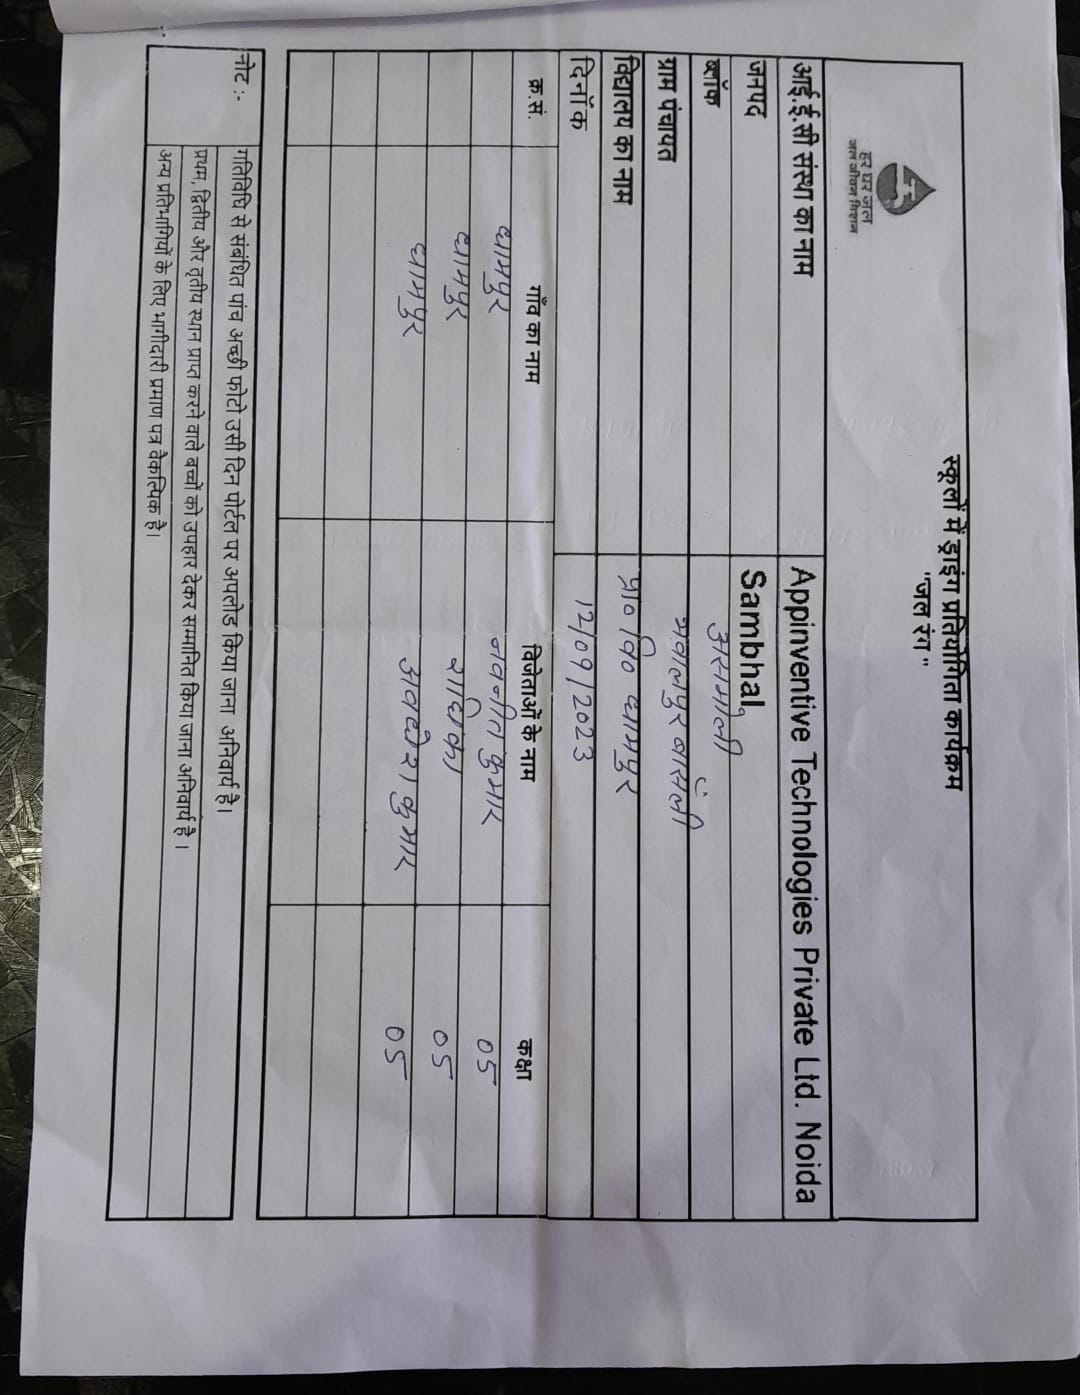 स्कूलों में ड्राइंग प्रतियोगिता कार्यक्रम
"जल रंग"
हर घर जल
जल जीवन मिशन
आई.ई.सी संस्था का नाम Appinventive Technologies Private Ltd. Noida
जनपद Sambhal
ब्लॉक असमोली
ग्राम पंचायत
विद्यालय का नाम प्रा० वि० धामपुर
दिनॉक 12/09/2023
क्र.सं. गाँव का नाम विजेताओं के नाम कक्षा
धामपुर नवनीत कुमार 05
धामपुर राधिका 05
धामपुर अवधेश कुमार 05
नोट :- गतिविधि से संबंधित पांच अच्छी फोटो उसी दिन पोर्टल पर अपलोड किया जाना अनिवार्य है।
प्रथम, द्वितीय और तृतीय स्थान प्राप्त करने वाले बच्चों को उपहार देकर सम्मानित किया जाना अनिवार्य है।
अन्य प्रतिभागियों के लिए भागीदारी प्रमाण पत्र वैकल्पिक है।